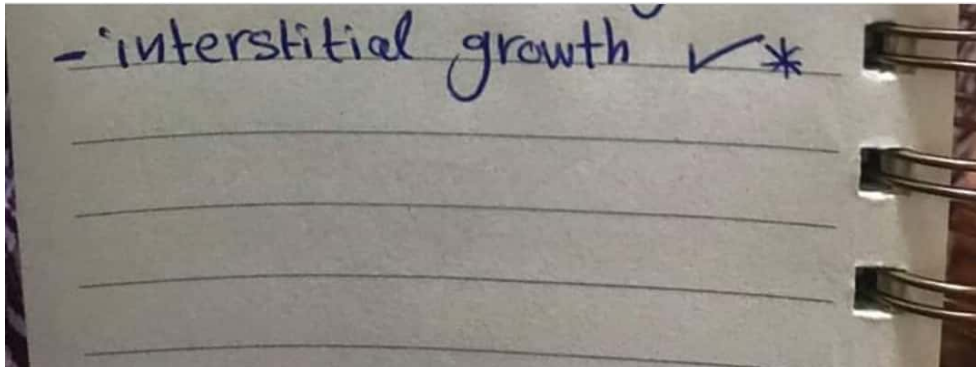 - interstitial growth ✓*